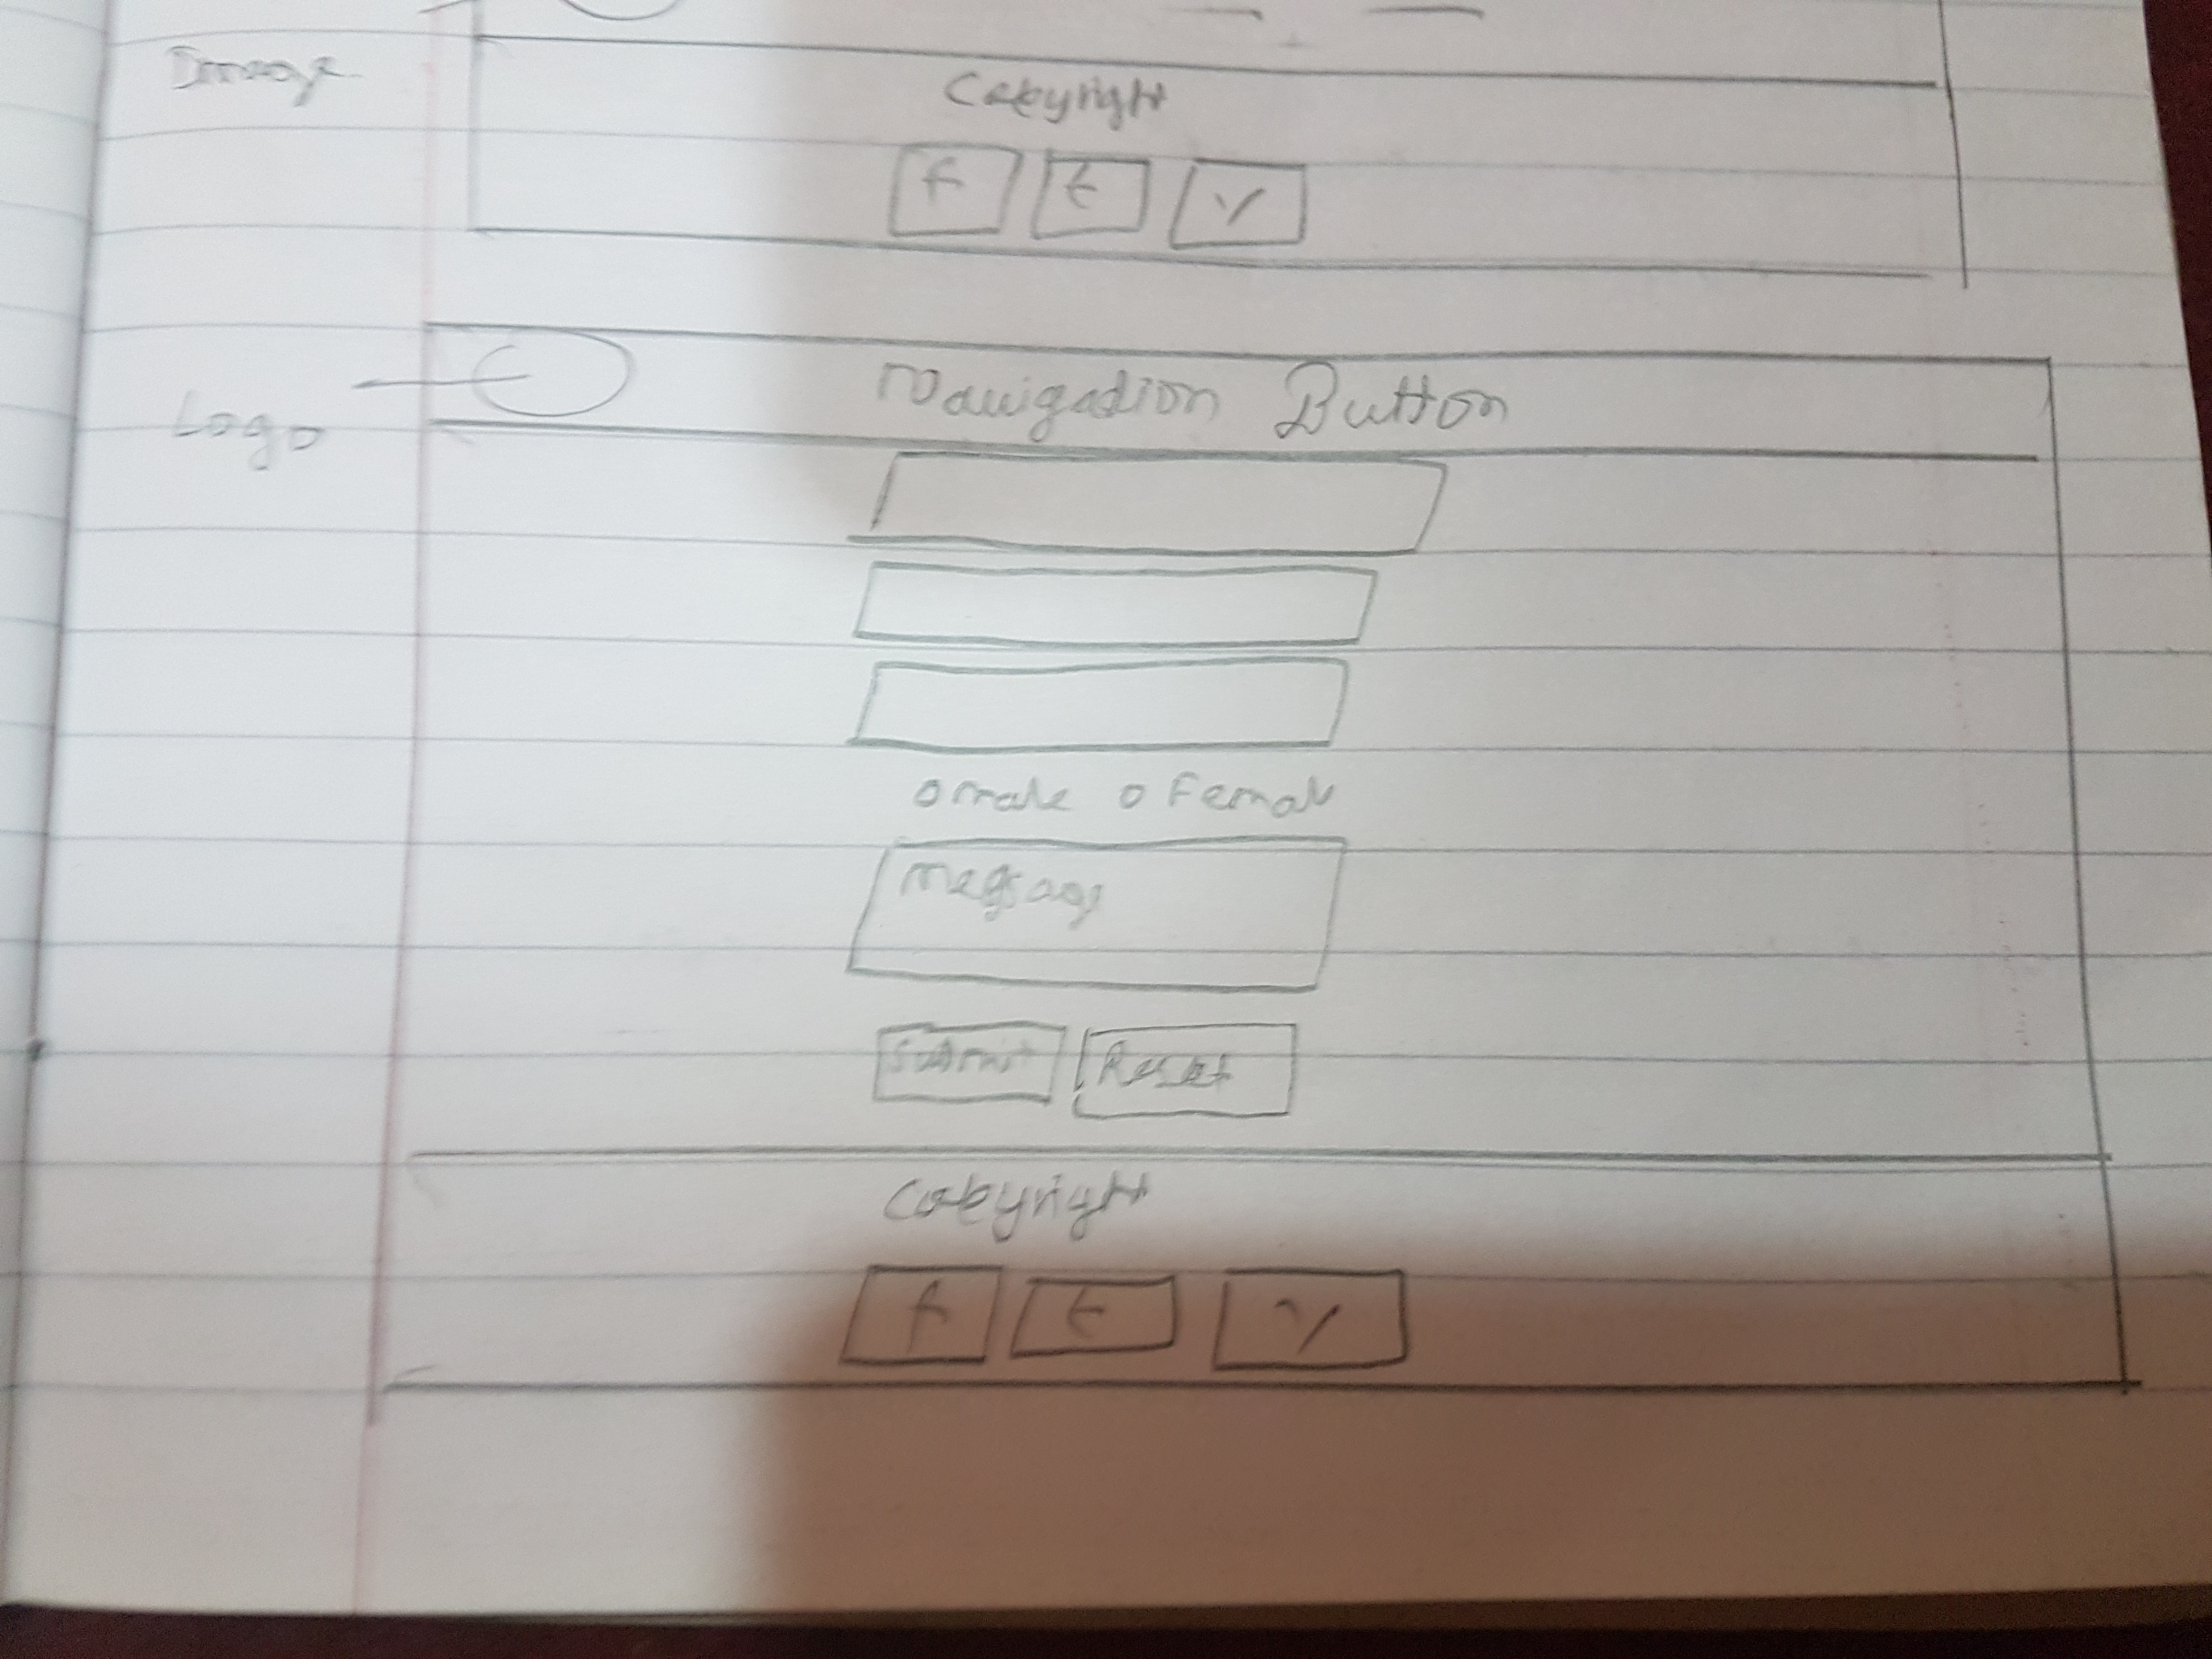 Image
Copyright
f t y
Navigation Button
Logo
o male o Female
Message
Submit Reset
Copyright
f t y